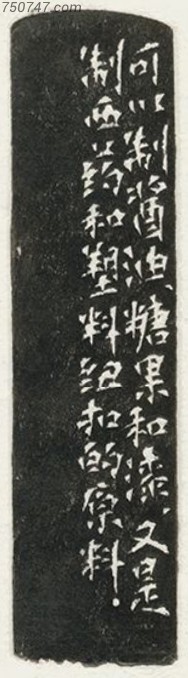 750747.com
可以制酱油、糖果和漆、又是
制西药和塑料纽扣的原料.